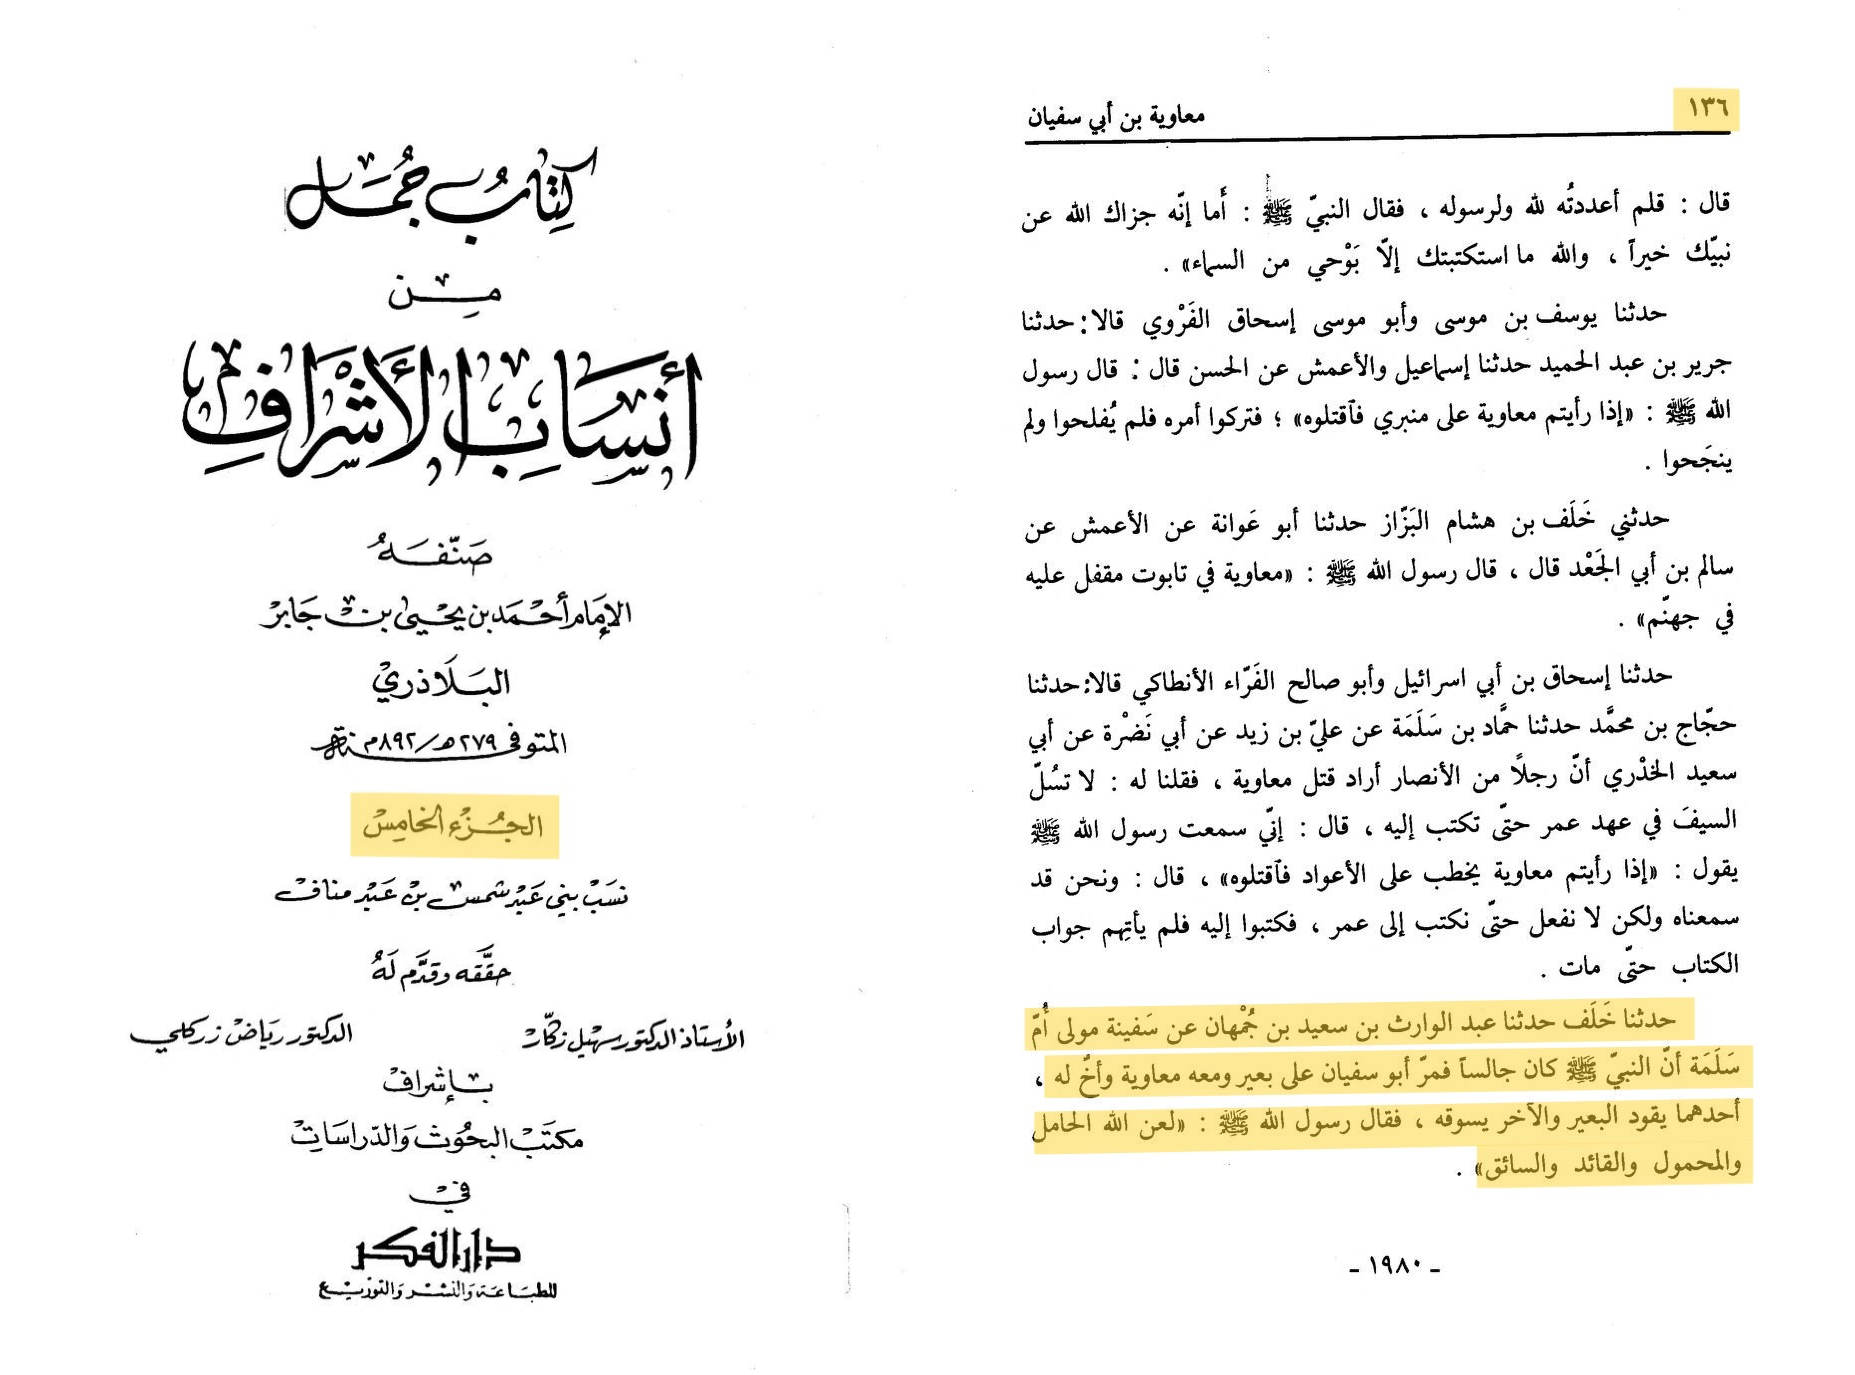 كتاب جمل
من
أنساب الأشراف
صنّفه
الإمام أحمد بن يحيى بن جابر
البلاذري
المتوفى ٢٧٩هـ/٨٩٢م
الجزء الخامس
نسب بني عبد شمس بن عبد مناف
حققه وقدم له
الأستاذ الدكتور سهيل زكار الدكتور رياض زركلي
بإشراف
مكتب البحوث والدراسات
في
دار الفكر
للطباعة والنشر والتوزيع
١٣٦ معاوية بن أبي سفيان
قال : قلم أعددتُه لله ولرسوله ، فقال النبيّ ﷺ : أَما إنّه جزاك الله عن
نبيّك خيراً ، والله ما استكتبتك إلاّ بَوْحي من السماء» .
حدثنا يوسف بن موسى وأبو موسى إسحاق الفَرْوي قالا: حدثنا
جرير بن عبد الحميد حدثنا إسماعيل والأعمش عن الحسن قال : قال رسول
الله ﷺ : «إذا رأيتم معاوية على منبري فٱقتلوه» ؛ فتركوا أمره فلم يُفلحوا ولم
ينجَحوا .
حدثني خَلَف بن هشام البَزّاز حدثنا أبو عَوانة عن الأعمش عن
سالم بن أبي الجَعْد قال ، قال رسول الله ﷺ : «معاوية في تابوت مقفل عليه
في جهنّم» .
حدثنا إسحاق بن أبي اسرائيل وأبو صالح الفَرّاء الأنطاكي قالا: حدثنا
حجّاج بن محمَّد حدثنا حمَّاد بن سَلَمَة عن عليّ بن زيد عن أبي نَضْرة عن أبي
سعيد الخذْري أنّ رجلاً من الأنصار أراد قتل معاوية ، فقلنا له : لا تسُلّ
السيفَ في عهد عمر حتّى تكتب إليه ، قال : إنّي سمعت رسول الله ﷺ
يقول : «إذا رأيتم معاوية يخطب على الأعواد فٱقتلوه» ، قال : ونحن قد
سمعناه ولكن لا نفعل حتّى نكتب إلى عمر ، فكتبوا إليه فلم يأتِهم جواب
الكتاب حتّى مات .
حدثنا خَلَف حدثنا عبد الوارث بن سعيد بن جُمْهان عن سَفينة مولى أُمّ
سَلَمَة أنّ النبيّ ﷺ كان جالساً فمرّ أبو سفيان على بعير ومعه معاوية وأخٌ له ،
أحدهما يقود البعير والآخر يسوقه ، فقال رسول الله ﷺ : «لعن الله الحامل
والمحمول والقائد والسائق» .
- ١٩٨٠ -